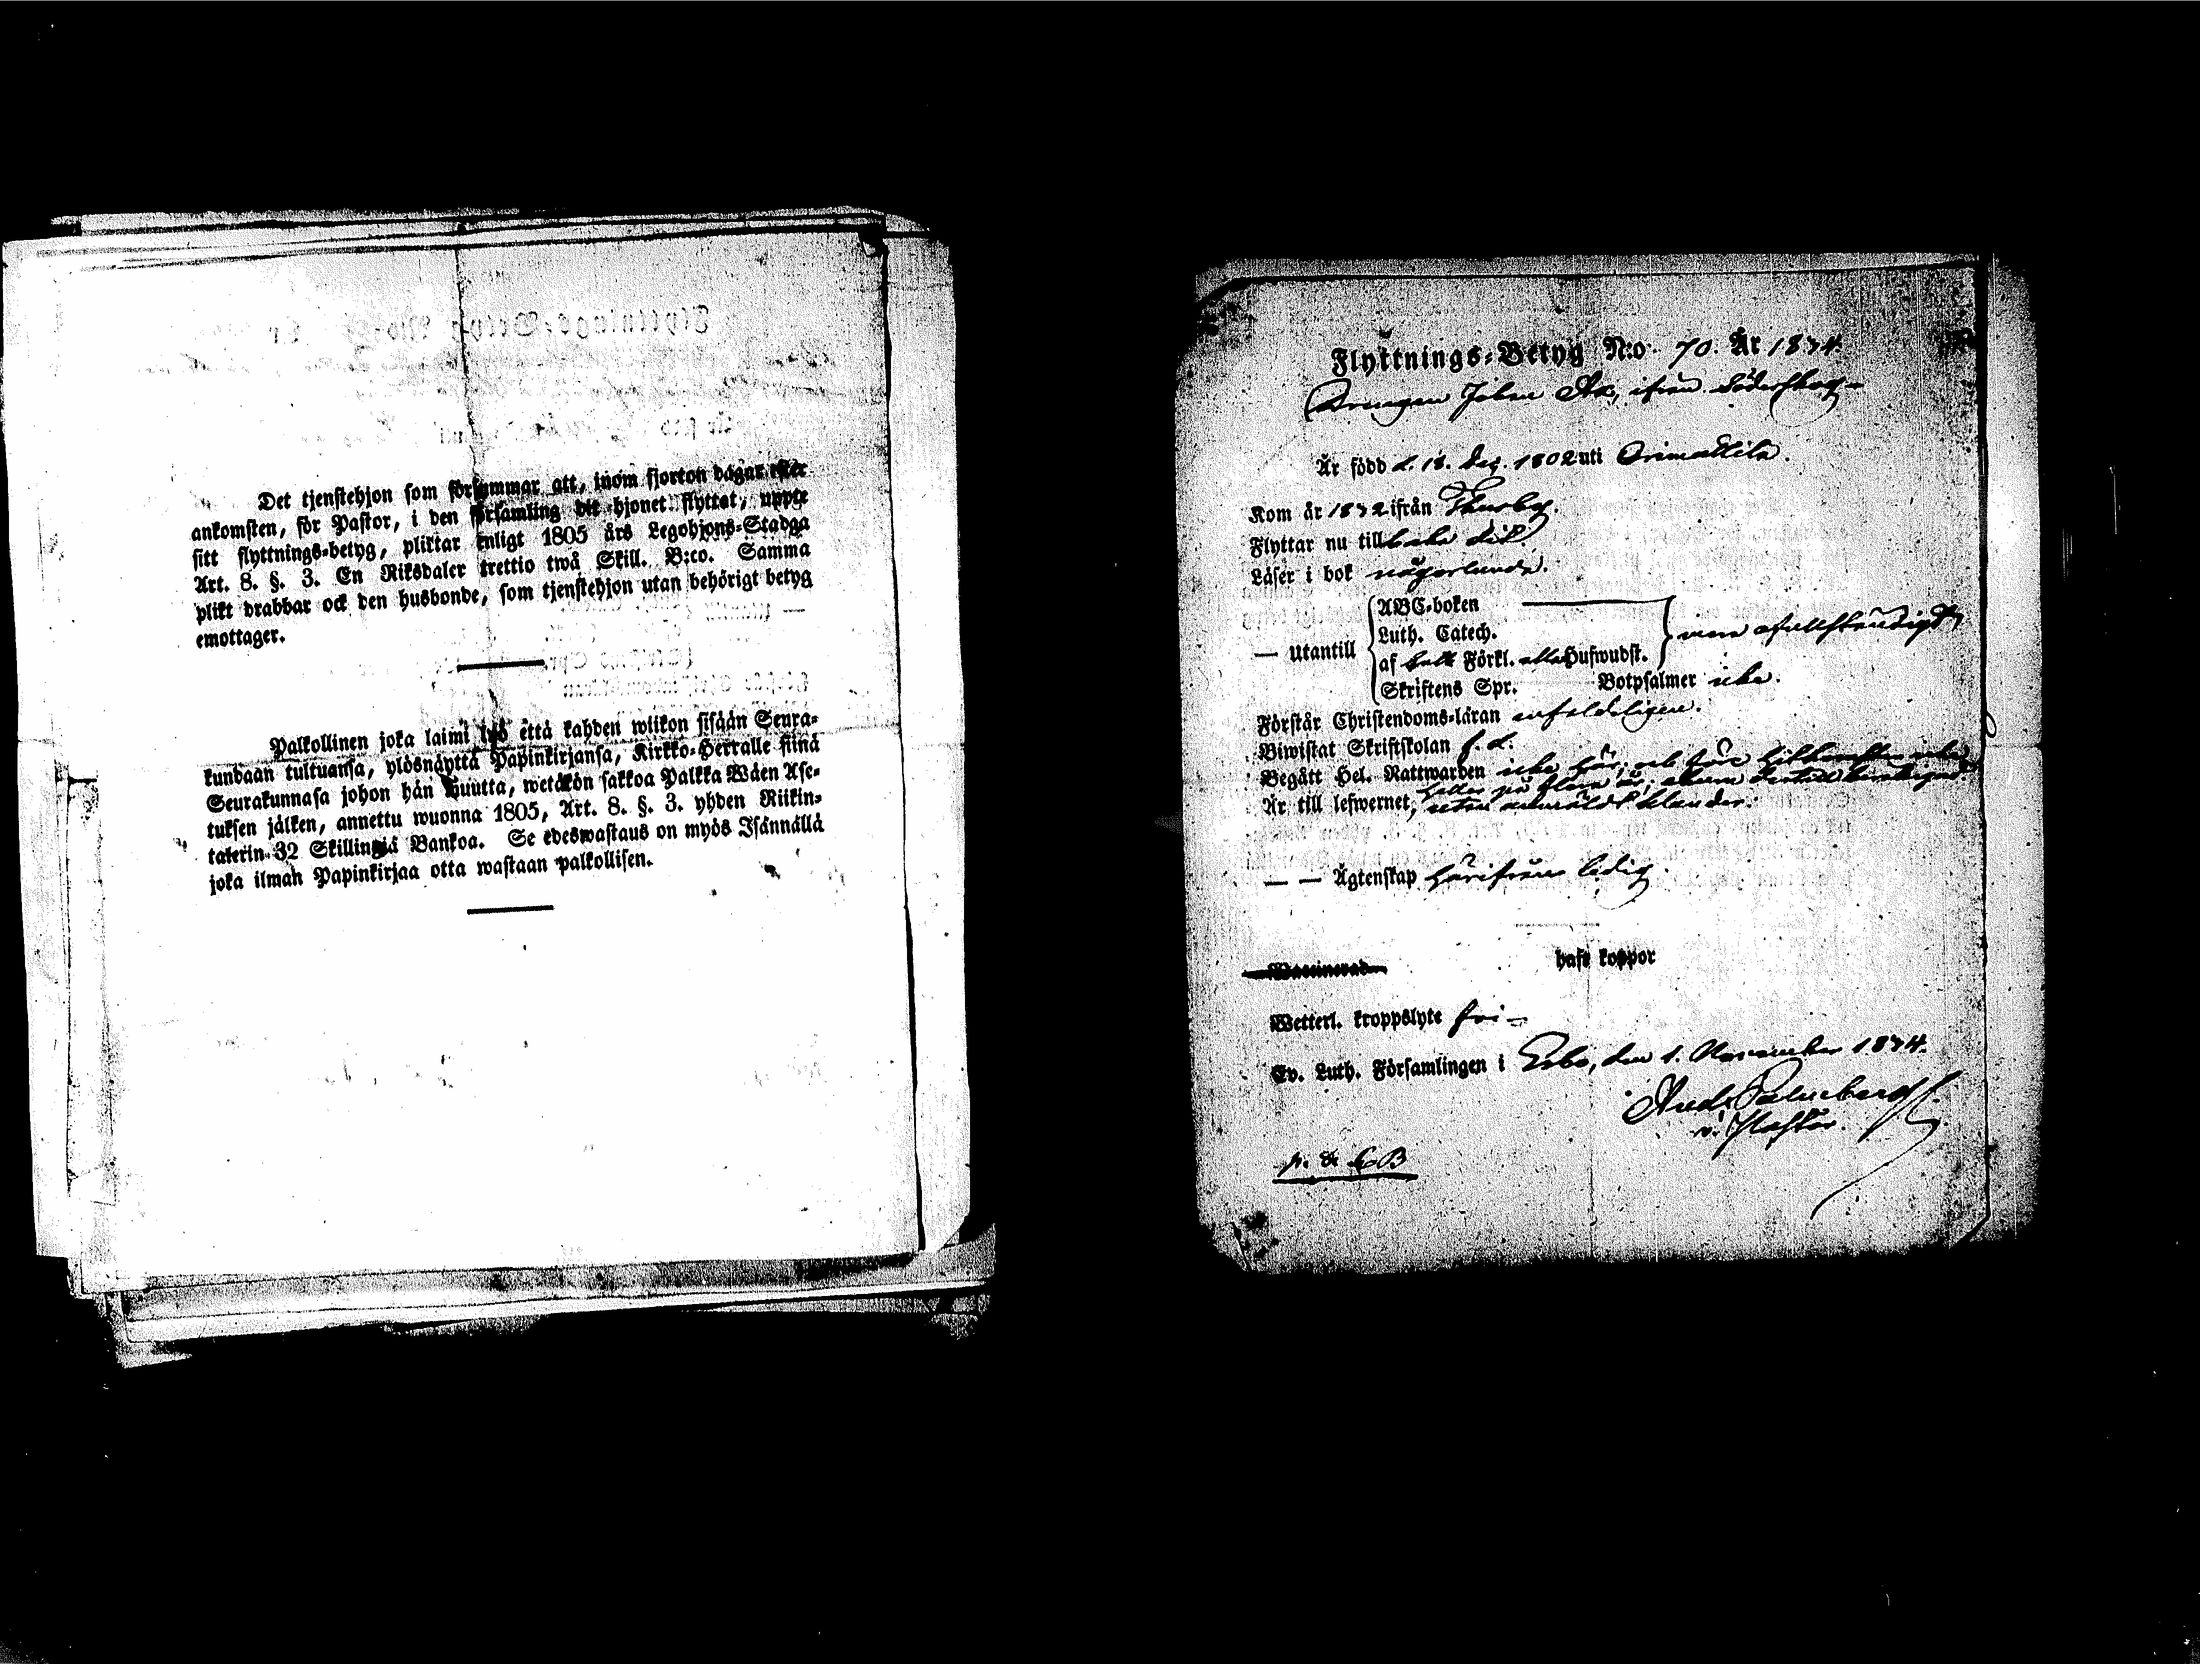 Det tjenstehjon som försummar att, inom fjorton dagar efter
ankomsten, för Pastor, i den församling dit hjonet flyttat, uppte
sitt flyttnings-betyg, pliktar enligt 1805 års Legohjons-Stadga
Art. 8. §. 3. En Riksdaler trettio twå Skill. B:co. Samma
plikt drabbar ock den husbonde, som tjenstehjon utan behörigt betyg
emottager.
Palkollinen joka laimi lyö että kahden wiikon sisään Seura-
kundaan tultuansa, ylösnäyttä Papinkirjansa, Kirkko-Herralle siinä
Seurakunnasa johon hän muutta, wetäkön sakkoa Palkka Wäen Ase-
tuksen jälken, annettu wuonna 1805, Art. 8. §. 3. yhden Riikin-
talerin 32 Skillingiä Bankoa. Se edeswastaus on myös Isännällä
joka ilman Papinkirjaa otta wastaan palkollisen.
Flyttnings-Betyg N:o 70. År 1834.
Drängen Johan ifrån
Är född d. 18. Dec. 1802 uti Orimattila.
Kom år 1832 ifrån Thusby.
Flyttar nu till baka dit.
Läser i bok någorlunda.
— Utantill
ABC-boken
Luth. Catech.
af Förkl. alla Hufwudst.
Skriftens Spr. Botpsalmer icke.
men ofullständigt
Förstår Christendoms-läran enfaldeligen.
Biwistat Skriftskolan f. d.
Begått Hel. Nattwarden icke här, och
Är till lefwernet, utan anmäldt klander.
— — Ägtenskap härifrån ledig.
Vaccinerad haft koppor
Wetterl. kroppslyte fri –
Ev. Luth. Församlingen i Esbo, den 1. November 1834.
And. Palmberg
v. Pastor.